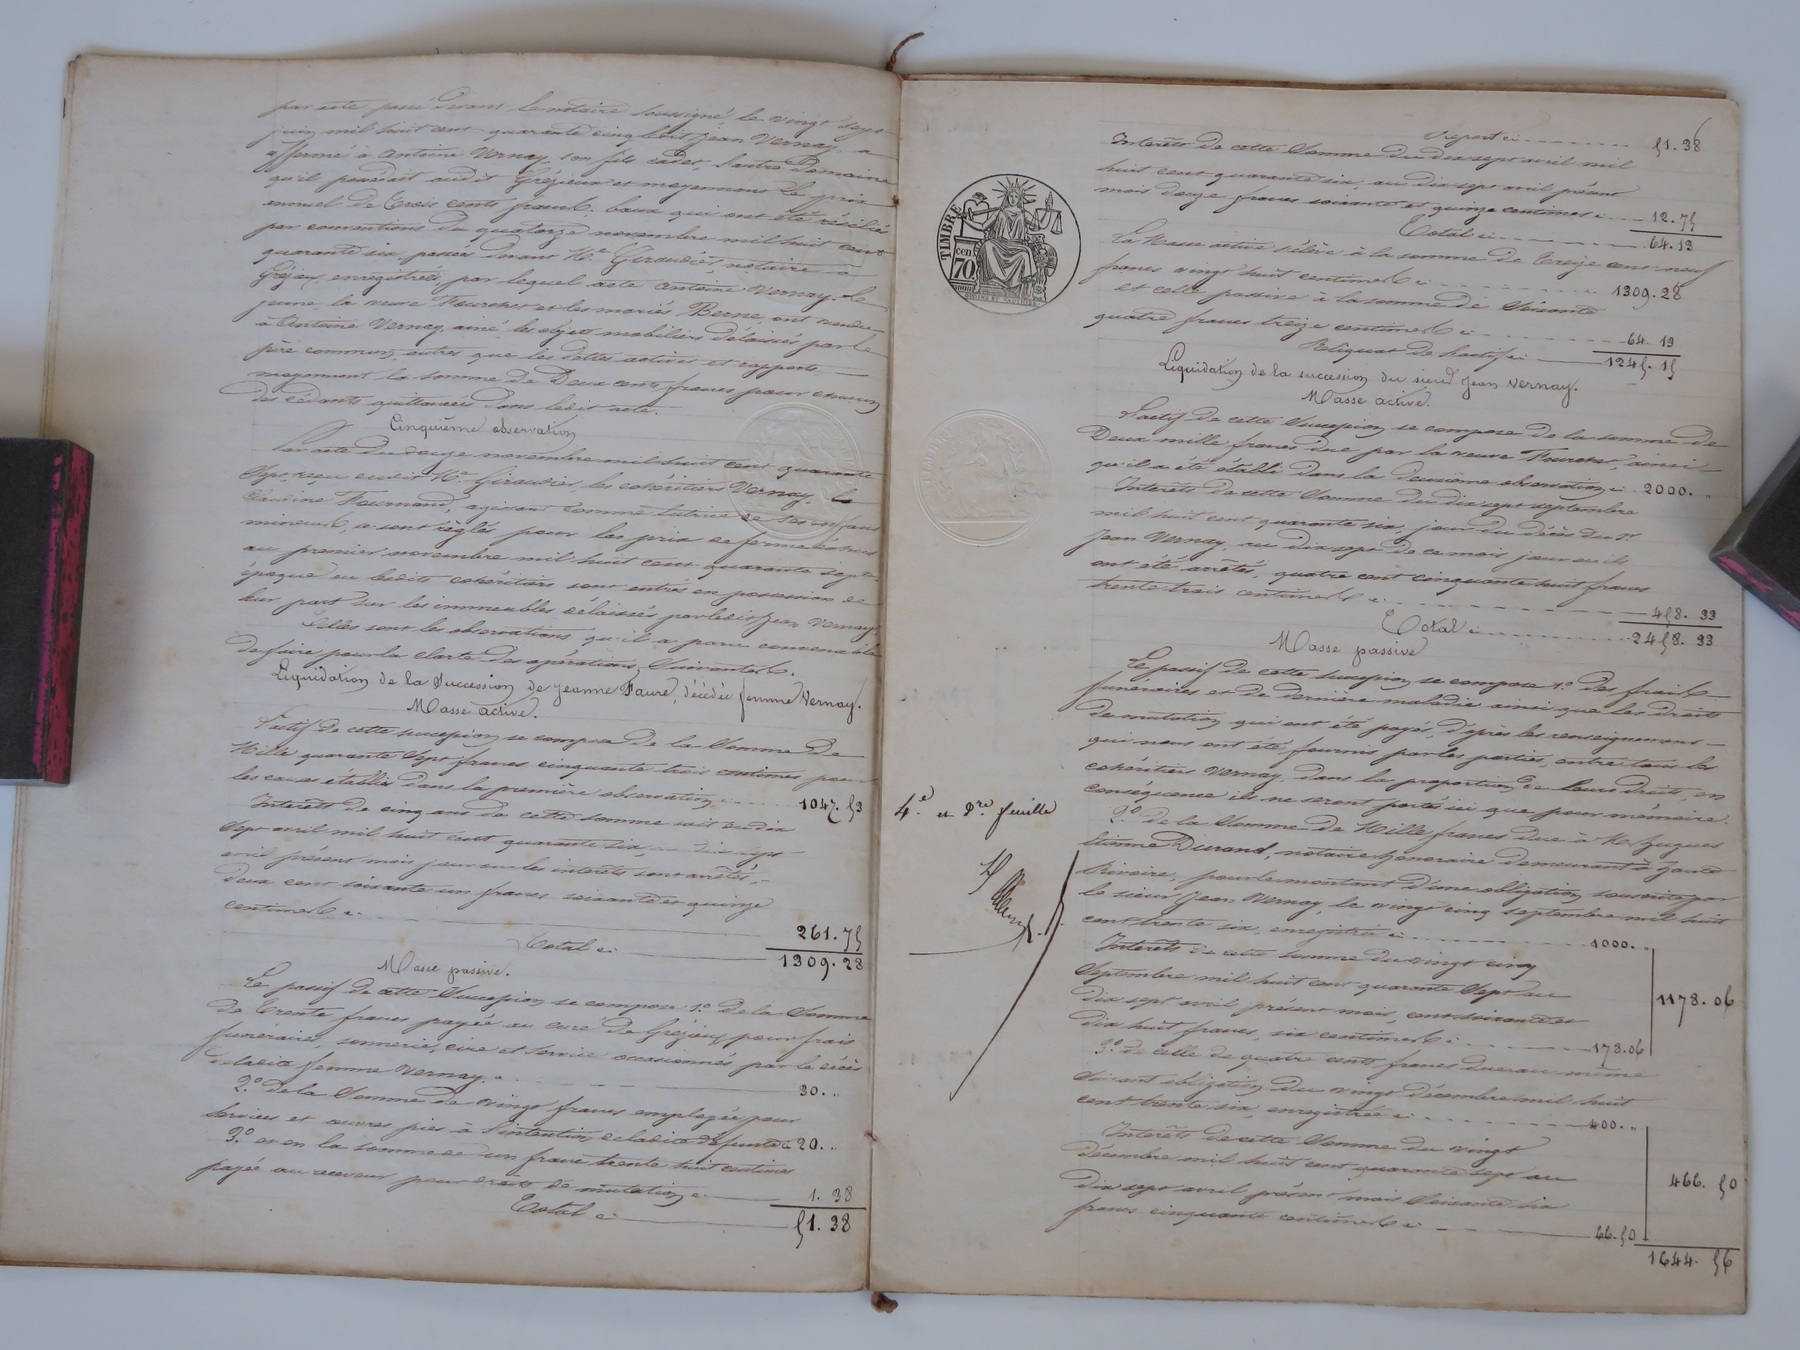 par acte passé devant le notaire soussigné, le vingt sept
juin mil huit cent quarante cinq ledit Jean Vernay a
affermé à Antoine Vernay son fils cadet, l'autre Domaine
qu'il possédait audit Grézieux et moyennant le prix
annuel de trois cents francs, baux qui ont été résiliés
par conventions du quatorze novembre mil huit cent
quarante six, passées devant Me. Giraudier, notaire à
Grézieux, enregistrées, par lequel acte Antoine Vernay le
jeune, la veuve Fourcher et les mariés Berne, ont vendu
à Antoine Vernay ainé les objets mobiliers délaissés par le
père commun, autres que les dettes actives et rapports
moyennant la somme de Deux cents francs pour chacun
des cédants quittancés dans ledit acte.
Cinquième observation
Par acte du douze novembre mil huit cent quarante
sept, reçu dudit Me. Giraudier, les cohéritiers Vernay, la
Claudine Fournand, agissant comme tutrice de ses enfans
mineurs, se sont réglés pour les prix de ferme échus
au premier novembre mil huit cent quarante sept
époque où lesdits cohéritiers sont entrés en possession de
leur part sur les immeubles délaissés par ledit Jean Vernay.
Telles sont les observations qu'il a paru convenable
de faire pour la clarté des opérations Suivantes.
Liquidation de la Succession de Jeanne Faure, décédée femme Vernay.
Masse active.
L'actif de cette succession se compose de la Somme de
Mille quarante Sept francs cinquante trois centimes pour
les causes établies dans la première observation ci 1047. 53
Intérêts de cinq ans de cette somme soit du dix
Sept avril mil huit cent quarante six, au dix sept
avril présent mois jour où les intérêts sont arrêtés,
deux cent soixante un francs soixante et quinze
centimes ci
261. 75
Total ci 1309. 28
Masse passive.
Le passif de cette Succession se compose 1o. De la Somme
de Trente francs payée au curé de Grézieux pour frais
funéraires, sonnerie, cire et service occasionnés par le décès
de ladite femme Vernay 30. "
2o. de la Somme de vingt francs employée pour
Services et œuvres pies à l'intention de ladite défunte ci 20. "
3o. et en la somme de un franc trente huit centimes
payée au receveur pour droits de mutation ci 1. 38
Total ci 51. 38
Report ci 51. 38
Intérêts de cette Somme du dix sept avril mil
huit cent quarante six, au dix sept avril présent
mois douze francs soixante et quinze centimes ci 12. 75
Total ci 64. 13
La Masse active s'élève à la somme de treize cent neuf
francs vingt huit centimes ci 1309. 28
et celle passive à la somme de Soixante
quatre francs treize centimes ci 64. 13
Reliquat de l'actif ci 1245. 15
Liquidation de la succession du sieur Jean Vernay.
Masse active.
L'actif de cette Succession se compose de la somme de
Deux mille francs due par la veuve Fourcher, ainsi
qu'il a été établi dans la deuxième observation ci 2000. "
Intérêts de cette Somme du dix sept septembre
mil huit cent quarante six, jour du décès du Sr.
Jean Vernay, au dix sept de ce mois jour où ils
ont été arrêtés, quatre cent cinquante huit francs
trente trois centimes ci 458. 33
Total ci 2458. 33
Masse passive
Le passif de cette succession se compose 1o. des frais
funéraires et de dernière maladie ainsi que les droits
de mutation qui ont été payés, d'après les renseignemens
qui nous ont été fournis par les parties, entre tous les
cohéritiers Vernay, dans la proportion de leurs droits, en
conséquence ils ne seront portés ici que pour mémoire.
2o. de la Somme de Mille francs due à Mr. Hugues
Etienne Durand, notaire honoraire demeurant à
pour le montant d'une obligation souscrite par
le sieur Jean Vernay, le vingt cinq septembre mil huit
cent trente six, enregistrée ci 1000. "
Intérêts de cette somme du vingt cinq
Septembre mil huit cent quarante Sept au
dix sept avril présent mois, cent soixante et
dix huit francs, six centimes ci 178. 06
1178. 06
3o. de celle de quatre cents francs due au même
Suivant obligation du vingt Décembre mil huit
cent trente six, enregistrée ci 400. "
Intérêts de cette Somme du vingt
décembre mil huit cent quarante sept au
dix sept avril présent mois Soixante six
francs cinquante centimes ci 66. 50
466. 50
1644. 56
TIMBRE
70 cen
4e. et Dre. feuille